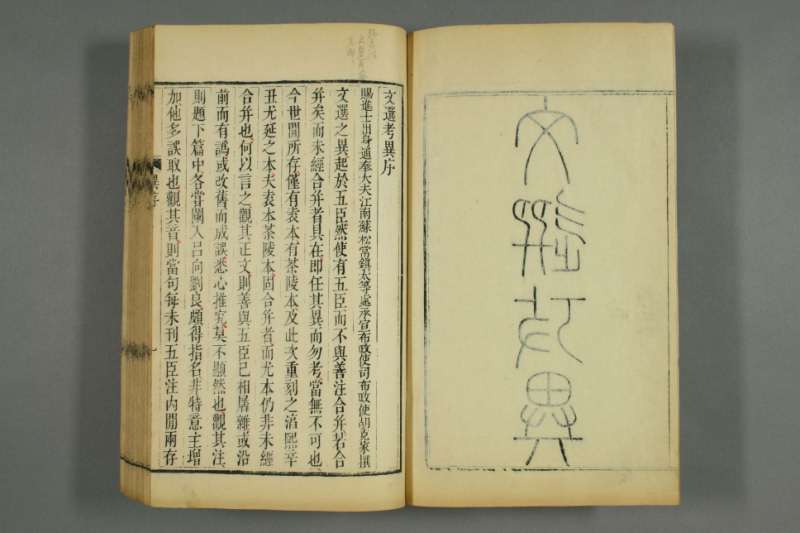 文選考異
文選考異序
賜進士出身通奉大夫江南蘇松常鎮太等處承宣布政使司布政使胡克家撰
文選之異起於五臣然使有五臣而不與善注合并若合
并矣而未經合并者具在即任其異而勿考當無不可也
今世閒所存僅有袁本有茶陵本及此次重刻之淳熙辛
丑尤延之本夫袁本茶陵本固合并者而尤本仍非未經
合并也何以言之觀其正文則善與五臣已相羼雜或沿
前而有譌或改舊而成誤悉心推究莫不顯然也觀其注
則題下篇中各嘗闌入呂向劉良頗得指名非特意主增
加他多誤取也觀其音則當句每未刊五臣注內閒兩存